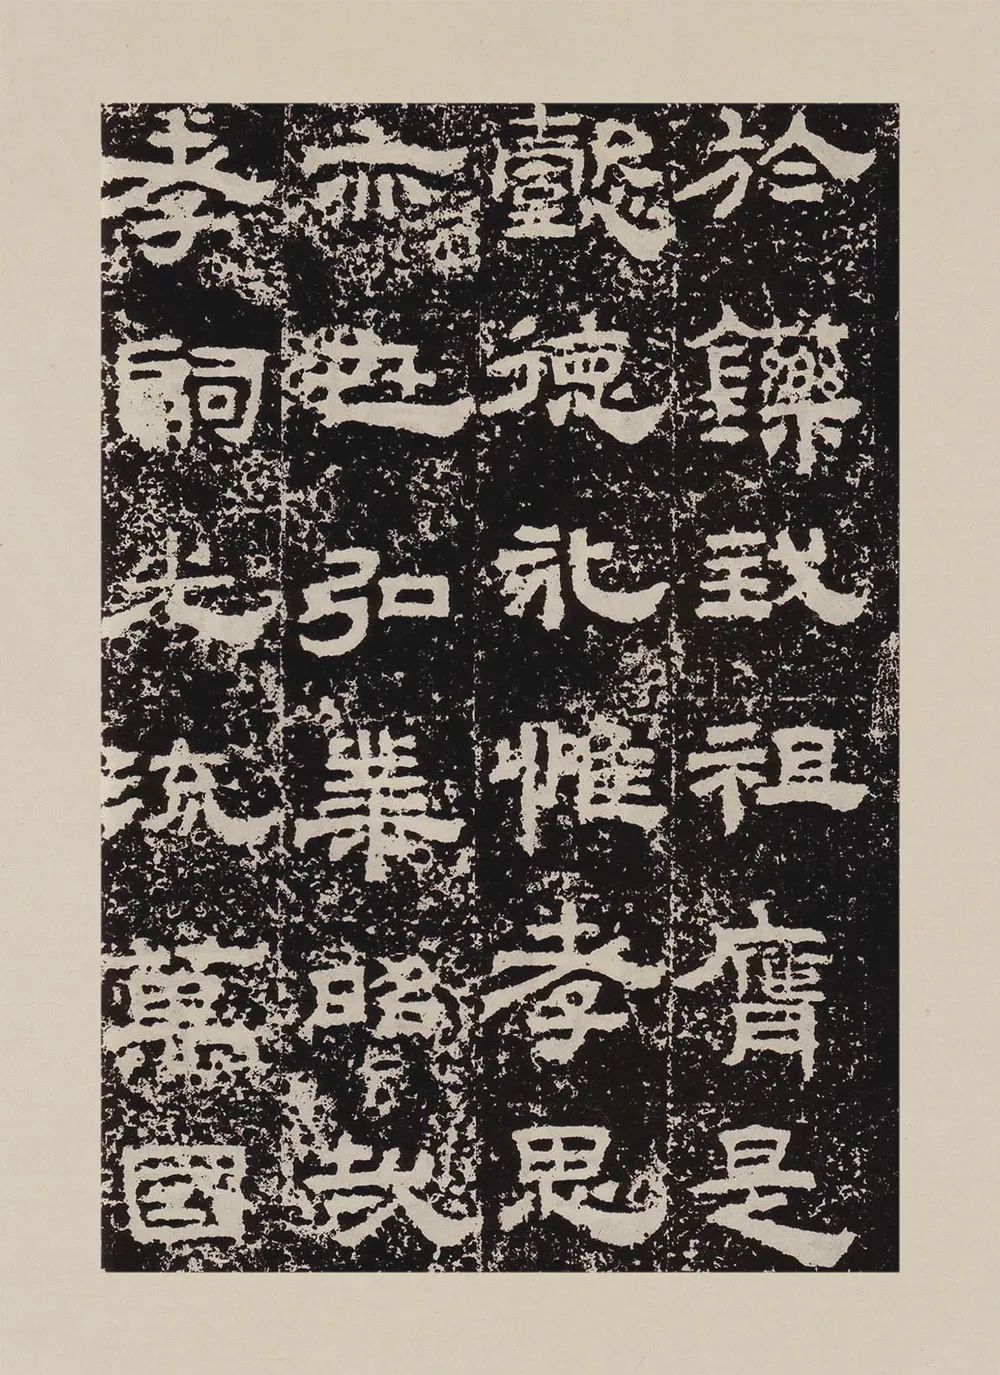 於鑠我祖膺是
懿德永惟孝思
亦世弘業昭哉
孝嗣光流萬國